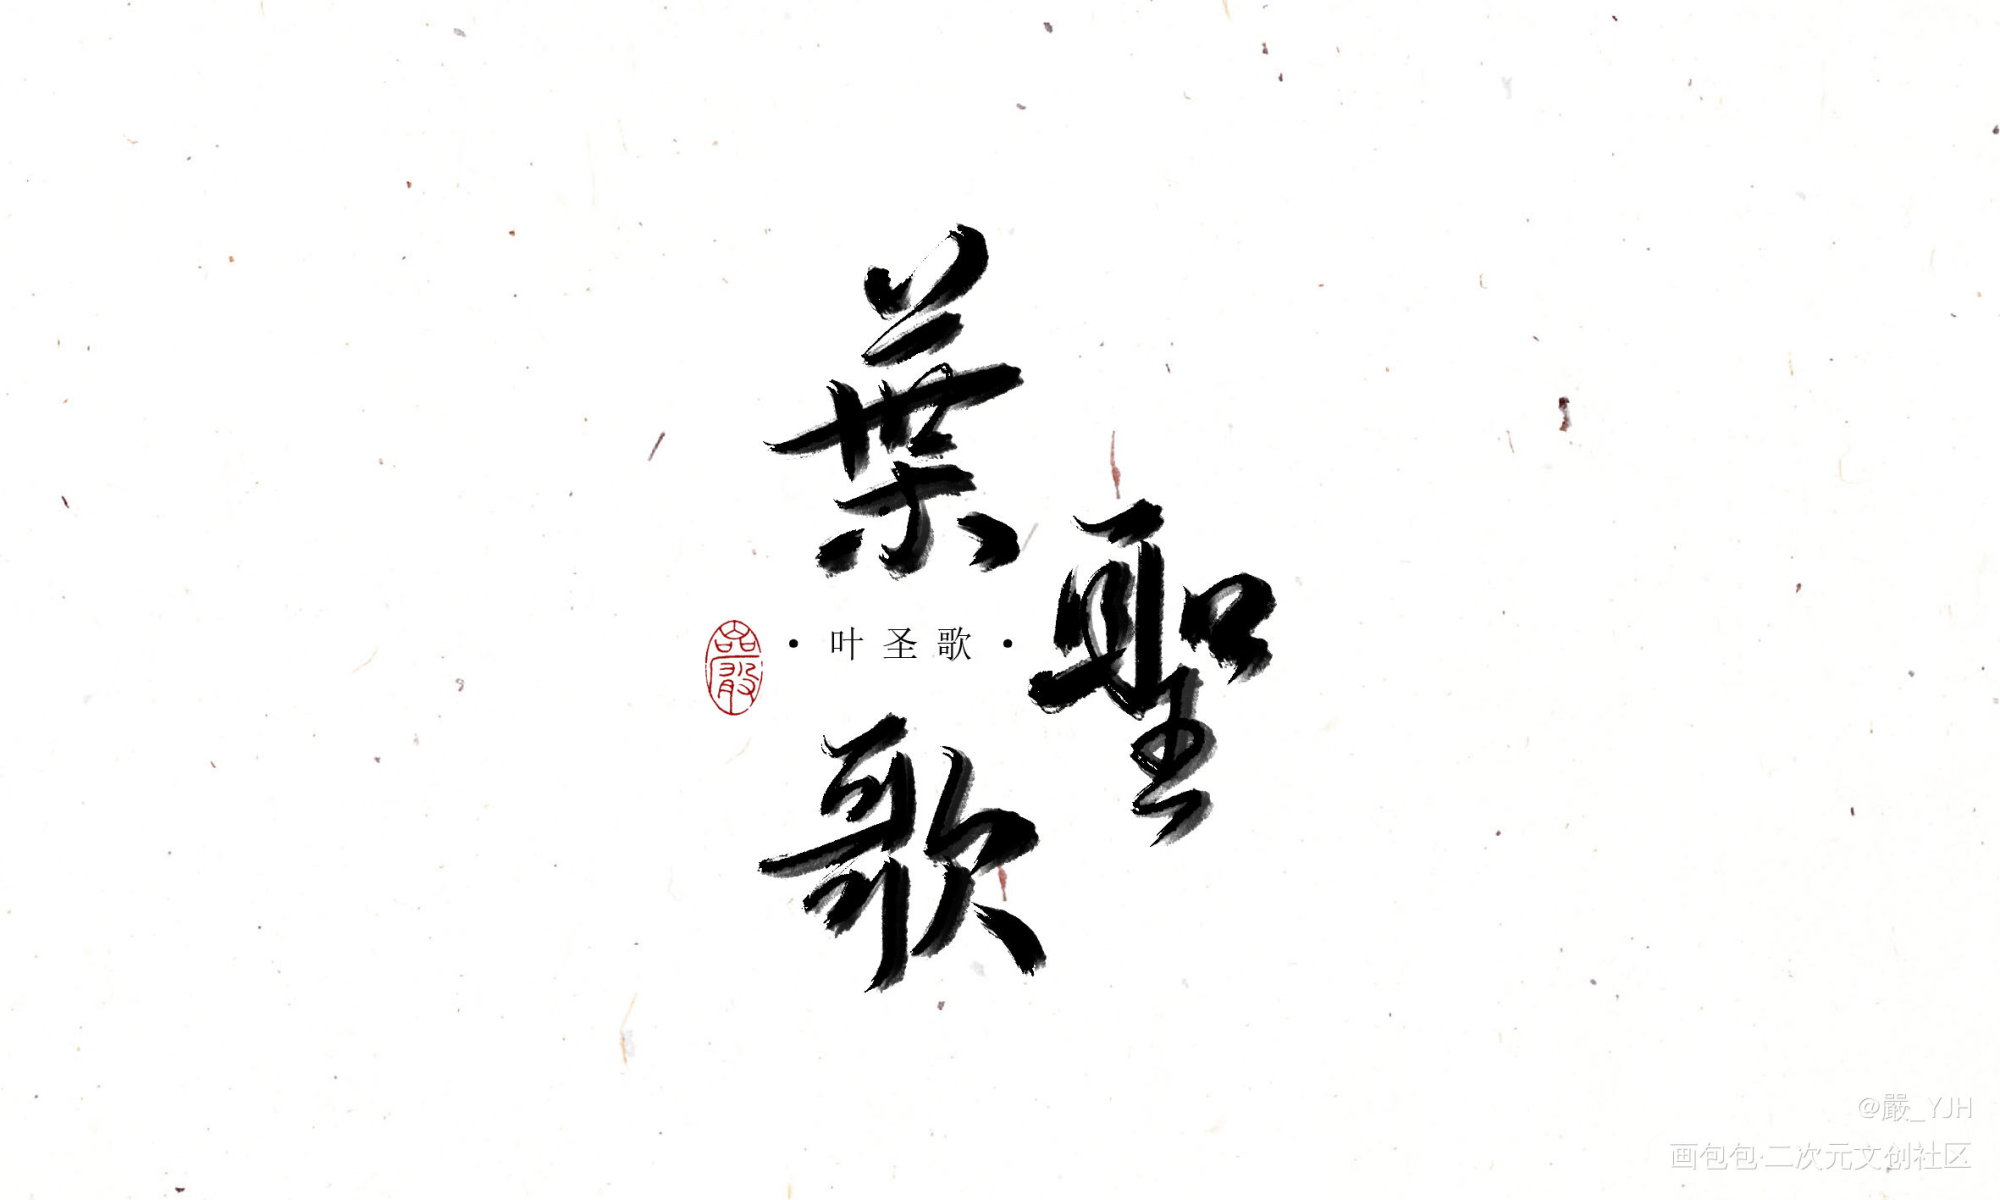 葉
聖
歌
·叶圣歌·
嚴
@嚴_YJH
画包包·二次元文创社区